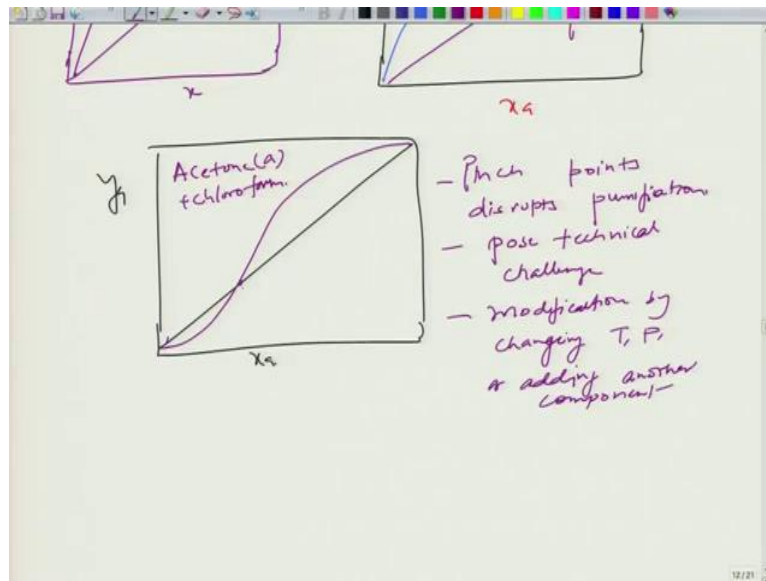 x
xa
y1
Acetone(a)
+chloroform.
xa
- Pinch points
disrupts purification
- pose technical
challenge
- modification by
changing T, P,
or adding another
component
12/21